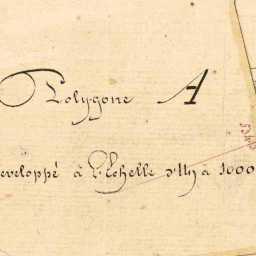 Polygone A
eveloppé à l'Echelle d'Un à 1000